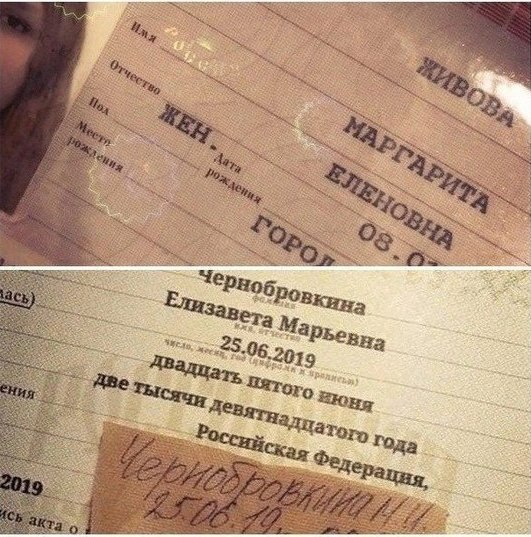 ЖИВОВА
Имя
МАРГАРИТА
Отчество
ЕЛЕНОВНА
Пол
ЖЕН.
Дата рождения
08.0
Место рождения
ГОРОД
Чернобровкина
фамилия
лась)
Елизавета Марьевна
имя, отчество
25.06.2019
число, месяц, год (цифрами и прописью)
двадцать пятого июня
две тысячи девятнадцатого года
ения
Российская Федерация,
2019
ись акта о
Чернобровкина М.И.
25.06.19